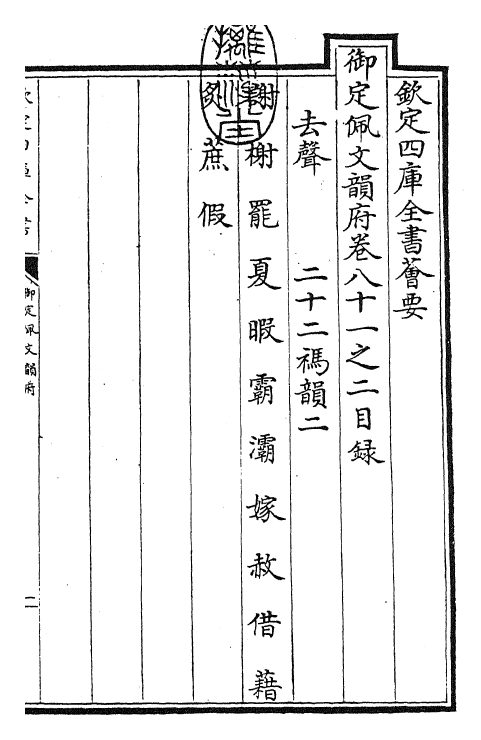 欽定四庫全書薈要
御定佩文韻府卷八十一之二目録
去聲 二十二禡韻二
謝 榭 罷 夏 暇 霸 灞 嫁 赦 借 藉
炙 蔗 假
御定佩文韻府